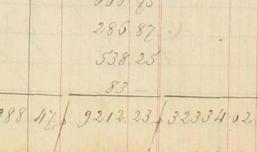 286 87
538 25
83 —
88 47 9212 23 32334 02